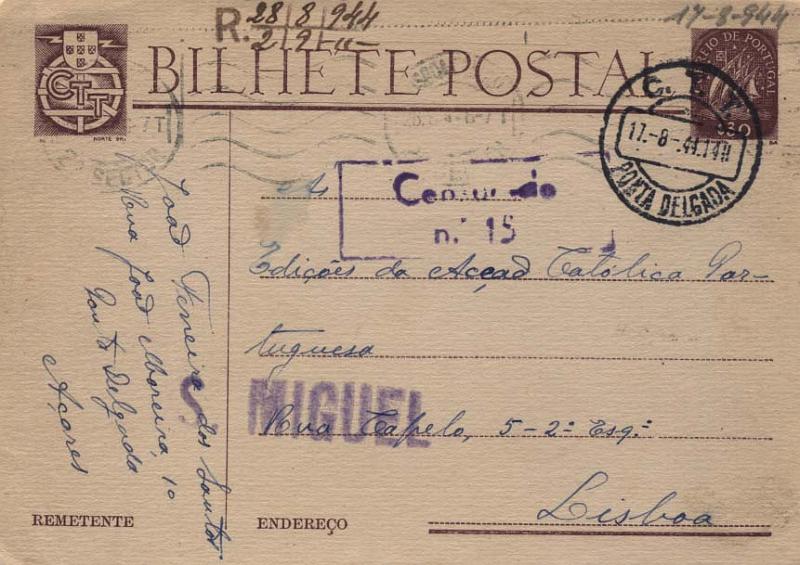 R. 28 8 944
2 9
17-8-944
BILHETE POSTAL
CTT
CORREIO DE PORTUGAL
$30
C. T. T.
17.-8-.44.14H
PONTA DELGADA
Às
Censurado
n.º 15
Edições da Acção Católica Por-
tuguesa
S. MIGUEL
Rua Capelo, 5-2º Esqº
Lisboa
João Ferreira dos Santos
Rua João Moreira, 10
Ponta Delgada
Açores
REMETENTE
ENDEREÇO